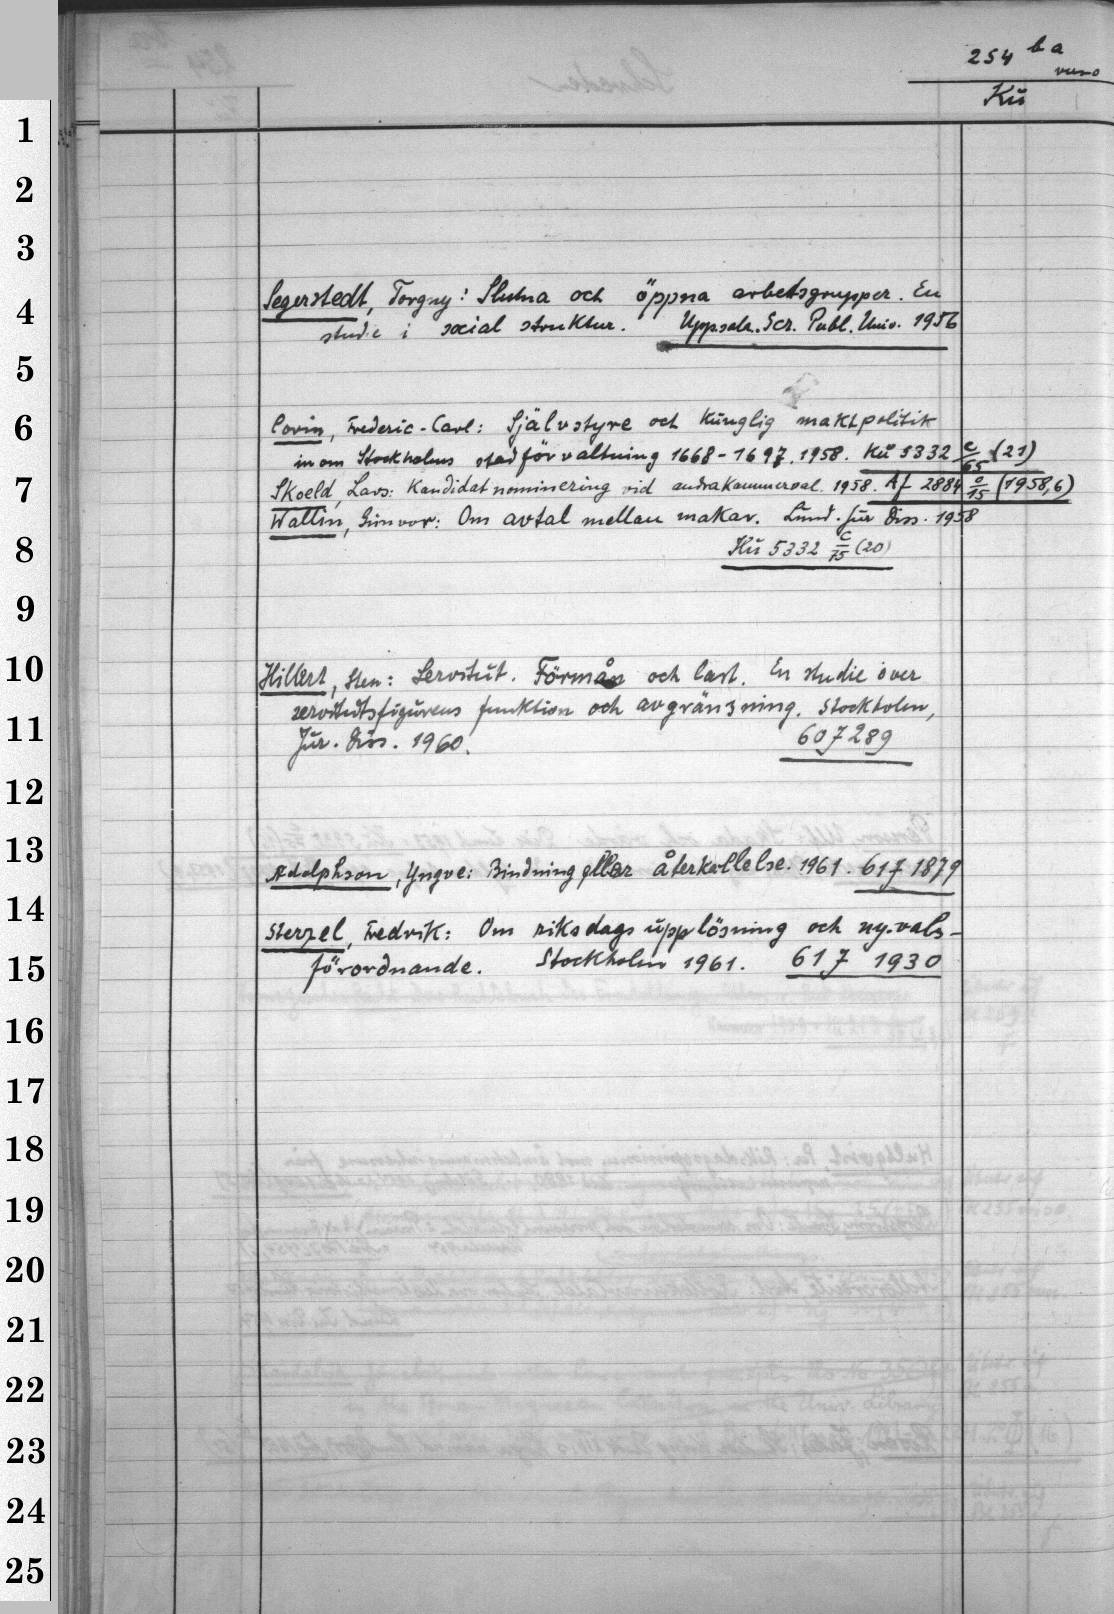 254 ba
verso
Kü
1
2
3
Segerstedt, Torgny: Slutna och öppna arbetsgrupper. En
4
studie i social struktur. Uppsala. Scr. Publ. Univ. 1956
5
6
Corin, Frederic-Carl: Självstyre och Kunglig maktpolitik
inom Stockholms stadförvaltning 1668-1697. 1958. Kü 5332 c/65 (21)
7
Skoeld, Lars: Kandidatnominering vid andrakammarval. 1958. Af 2884 o/15 (1958,6)
Wallin, Gunvor: Om avtal mellan makar. Lund. Jur Diss. 1958
8
Kü 5332 c/75 (20)
9
10
Hillert, Sten: Servitut. Förmån och last. En studie över
servitutsfigurens funktion och avgränsning. Stockholm,
11
Jur. Diss. 1960. 607289
12
13
Adolphson, Yngve: Bindning eller återkallelse. 1961. 617 1879
14
Sterzel, Fredrik: Om riksdagsupplösning och ny-vals-
15
förordnande. Stockholm 1961. 617 1930
16
17
18
19
20
21
22
23
24
25